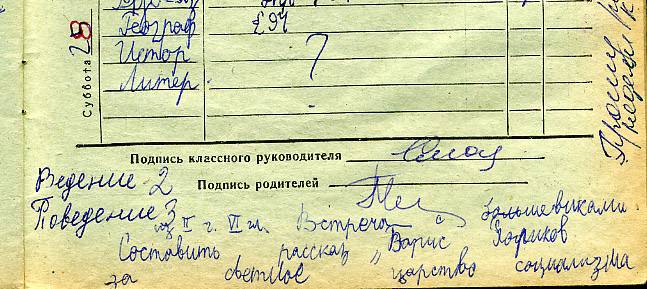 Географ § 97
Суббота 28
Истор
Литер.
Подпись классного руководителя
Ведение 2
Подпись родителей
Поведение 3
из II г. VI гл. Встреча с большевиками
Составить рассказ „Варис
за светлое царство социализма
Прошу